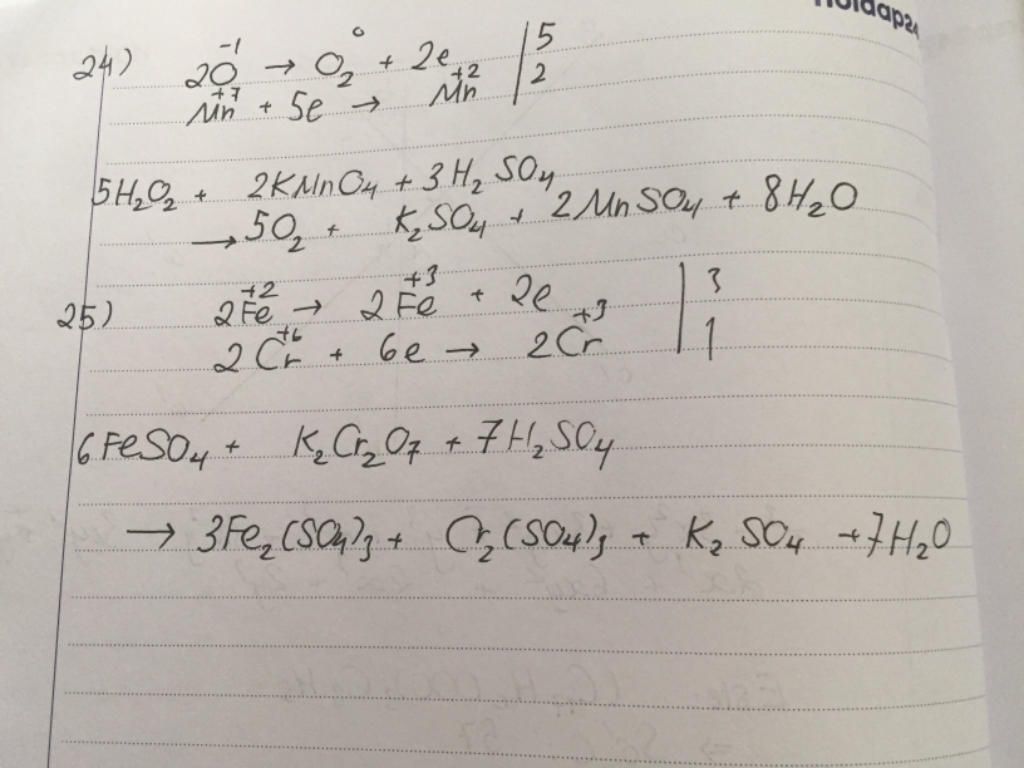 24) 2O⁻¹ → O₂⁰ + 2e | 5
Mn⁺⁷ + 5e → Mn⁺² | 2
5H₂O₂ + 2KMnO₄ + 3H₂SO₄
→ 5O₂ + K₂SO₄ + 2MnSO₄ + 8H₂O
25) 2Fe⁺² → 2Fe⁺³ + 2e | 3
2Cr⁺⁶ + 6e → 2Cr⁺³ | 1
6FeSO₄ + K₂Cr₂O₇ + 7H₂SO₄
→ 3Fe₂(SO₄)₃ + Cr₂(SO₄)₃ + K₂SO₄ + 7H₂O